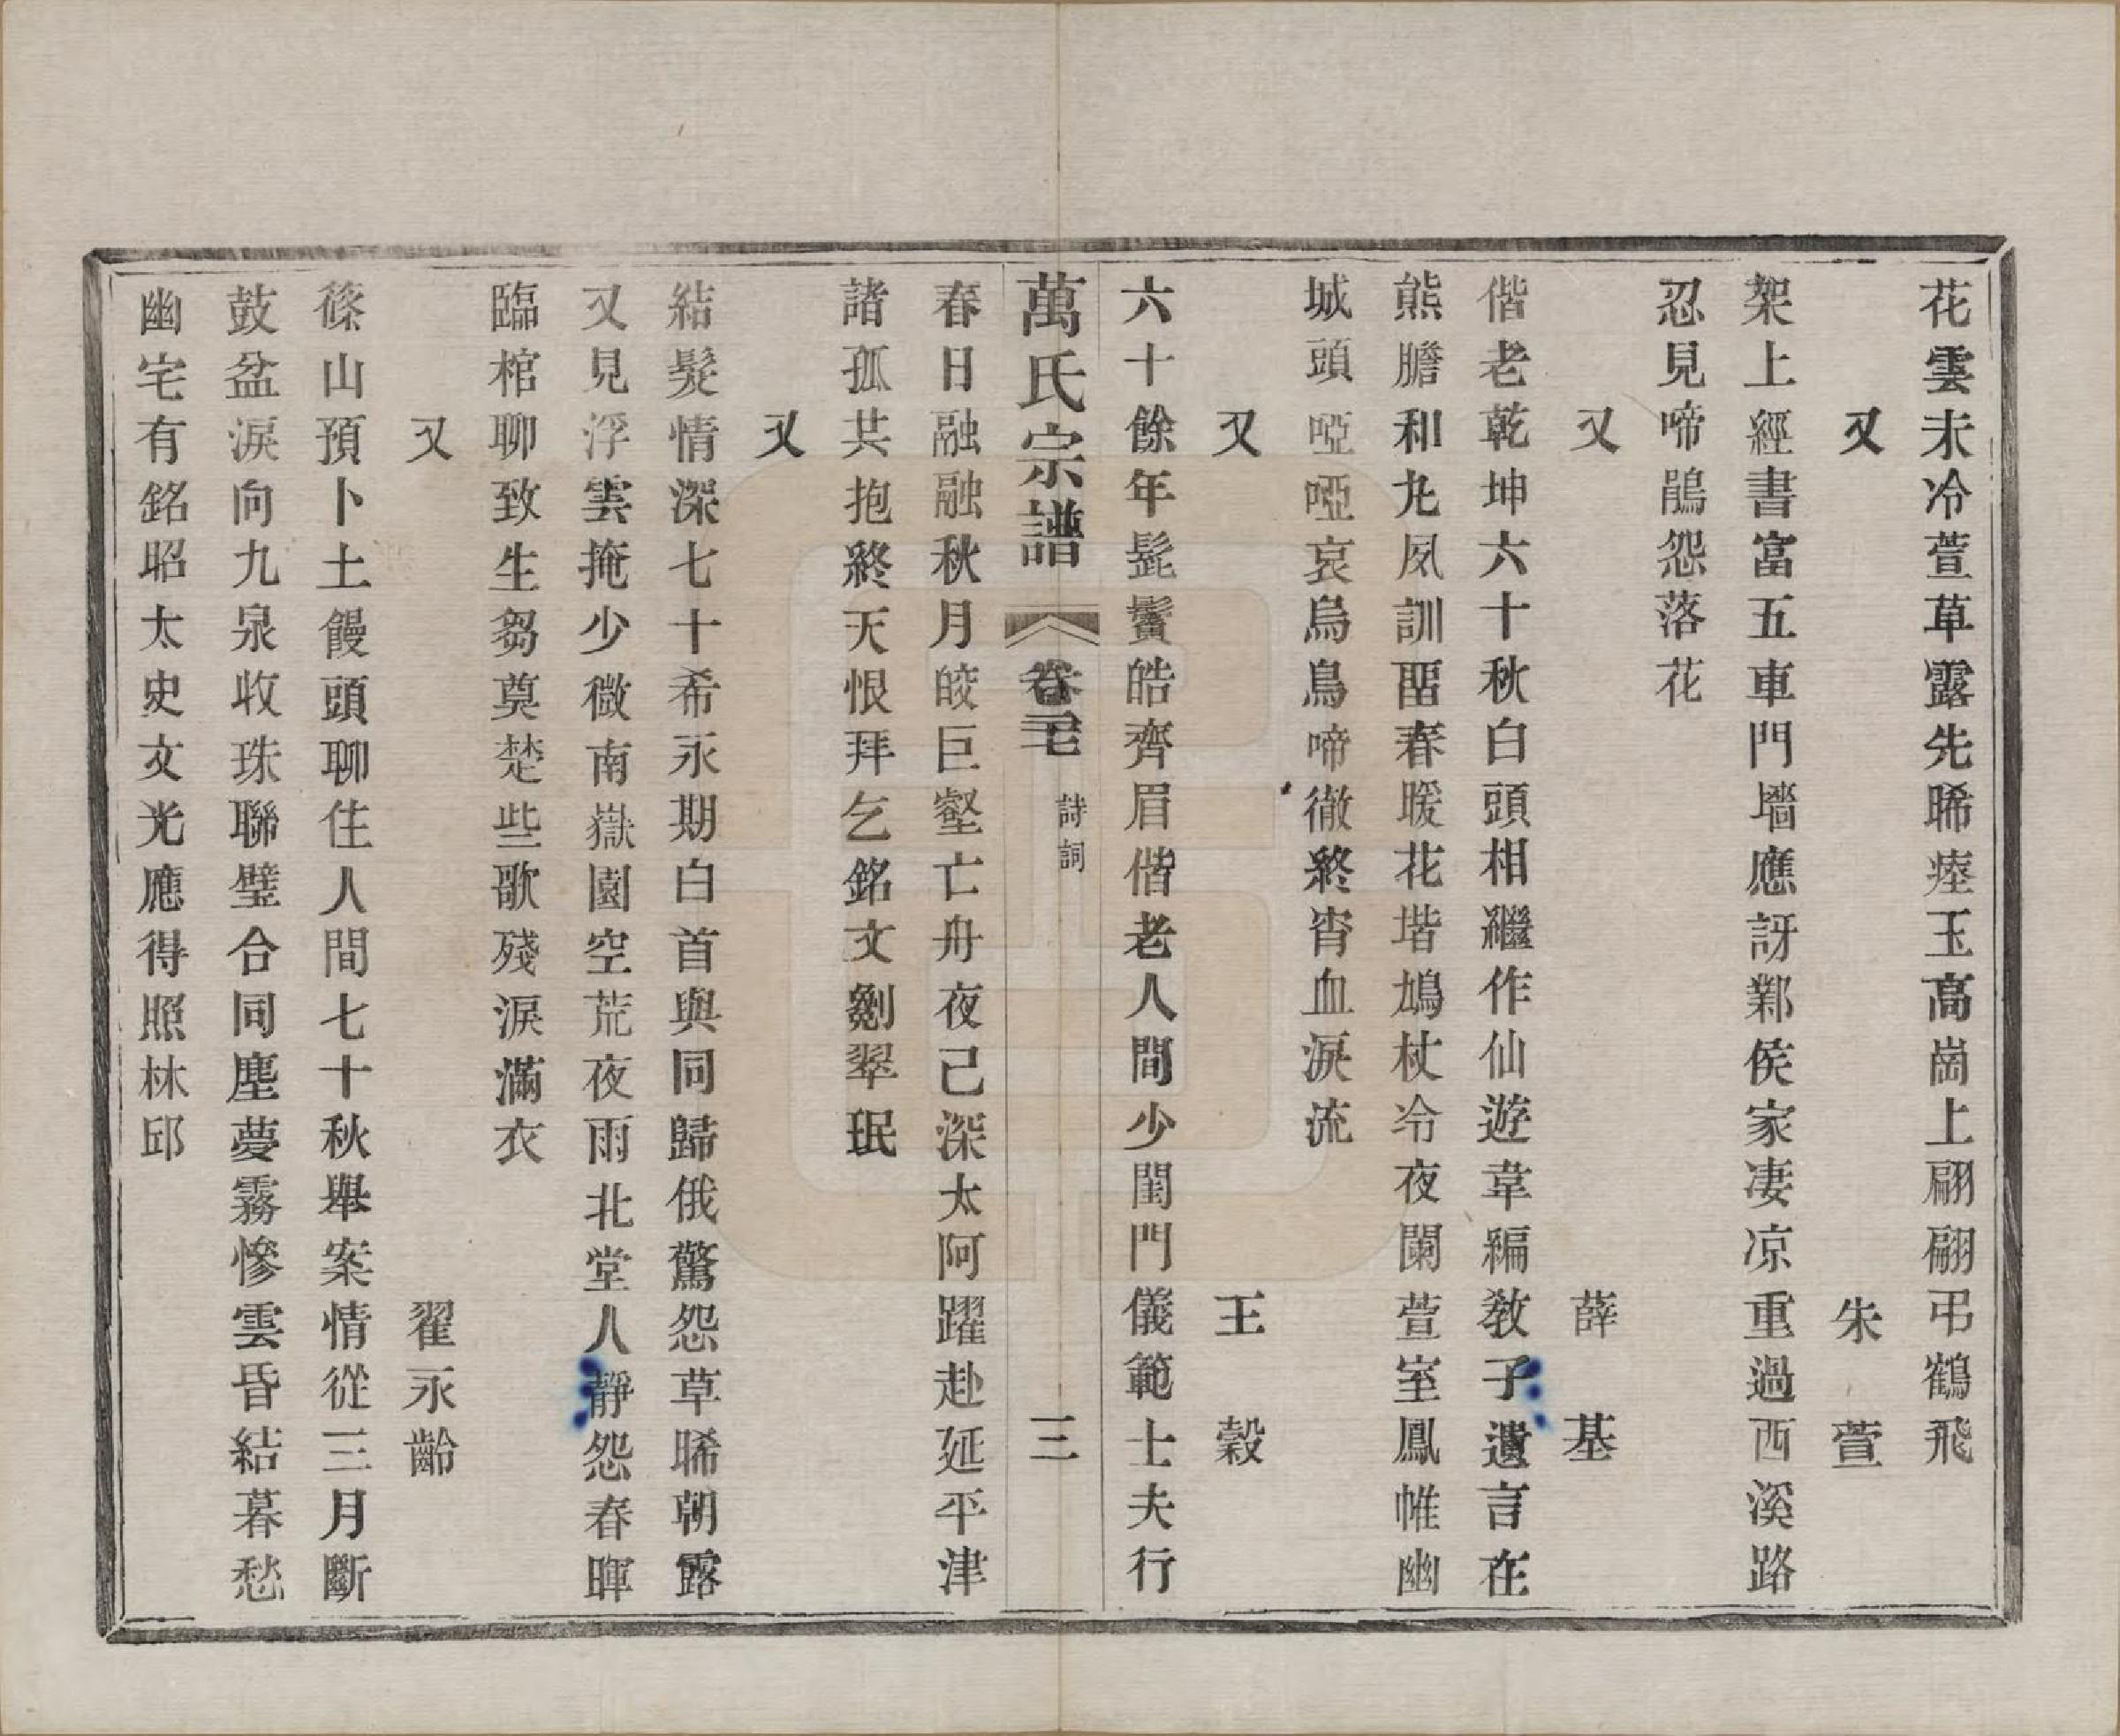 花雲未冷萱草露先晞瘞玉高崗上翩翩弔鶴飛
又　朱萱
架上經書富五車門墻應訝鄴侯家凄凉重過西溪路
忍見啼鵑怨落花
又　薛基
偕老乾坤六十秋白頭相繼作仙遊韋編敎子遺言在
熊膽和九夙訓畱春暖花堦鳩杖冷夜闌萱室鳳帷幽
城頭啞啞哀烏鳥啼徹終宵血淚流
又　王穀
六十餘年髭鬢皓齊眉偕老人間少閨門儀範士夫行
萬氏宗譜　卷三七　詩詞　三
春日融融秋月皎巨壑亡舟夜已深太阿躍赴延平津
諸孤共抱終天恨拜乞銘文劖翠珉
又
結髮情深七十希永期白首與同歸俄驚怨草晞朝露
又見浮雲掩少微南嶽園空荒夜雨北堂人靜怨春暉
臨棺聊致生芻奠楚些歌殘淚滿衣
又　翟永齡
篠山預卜土饅頭聊住人間七十秋舉案情從三月斷
鼓盆淚向九泉收珠聯璧合同塵夢霧慘雲昏結暮愁
幽宅有銘昭太史文光應得照林邱